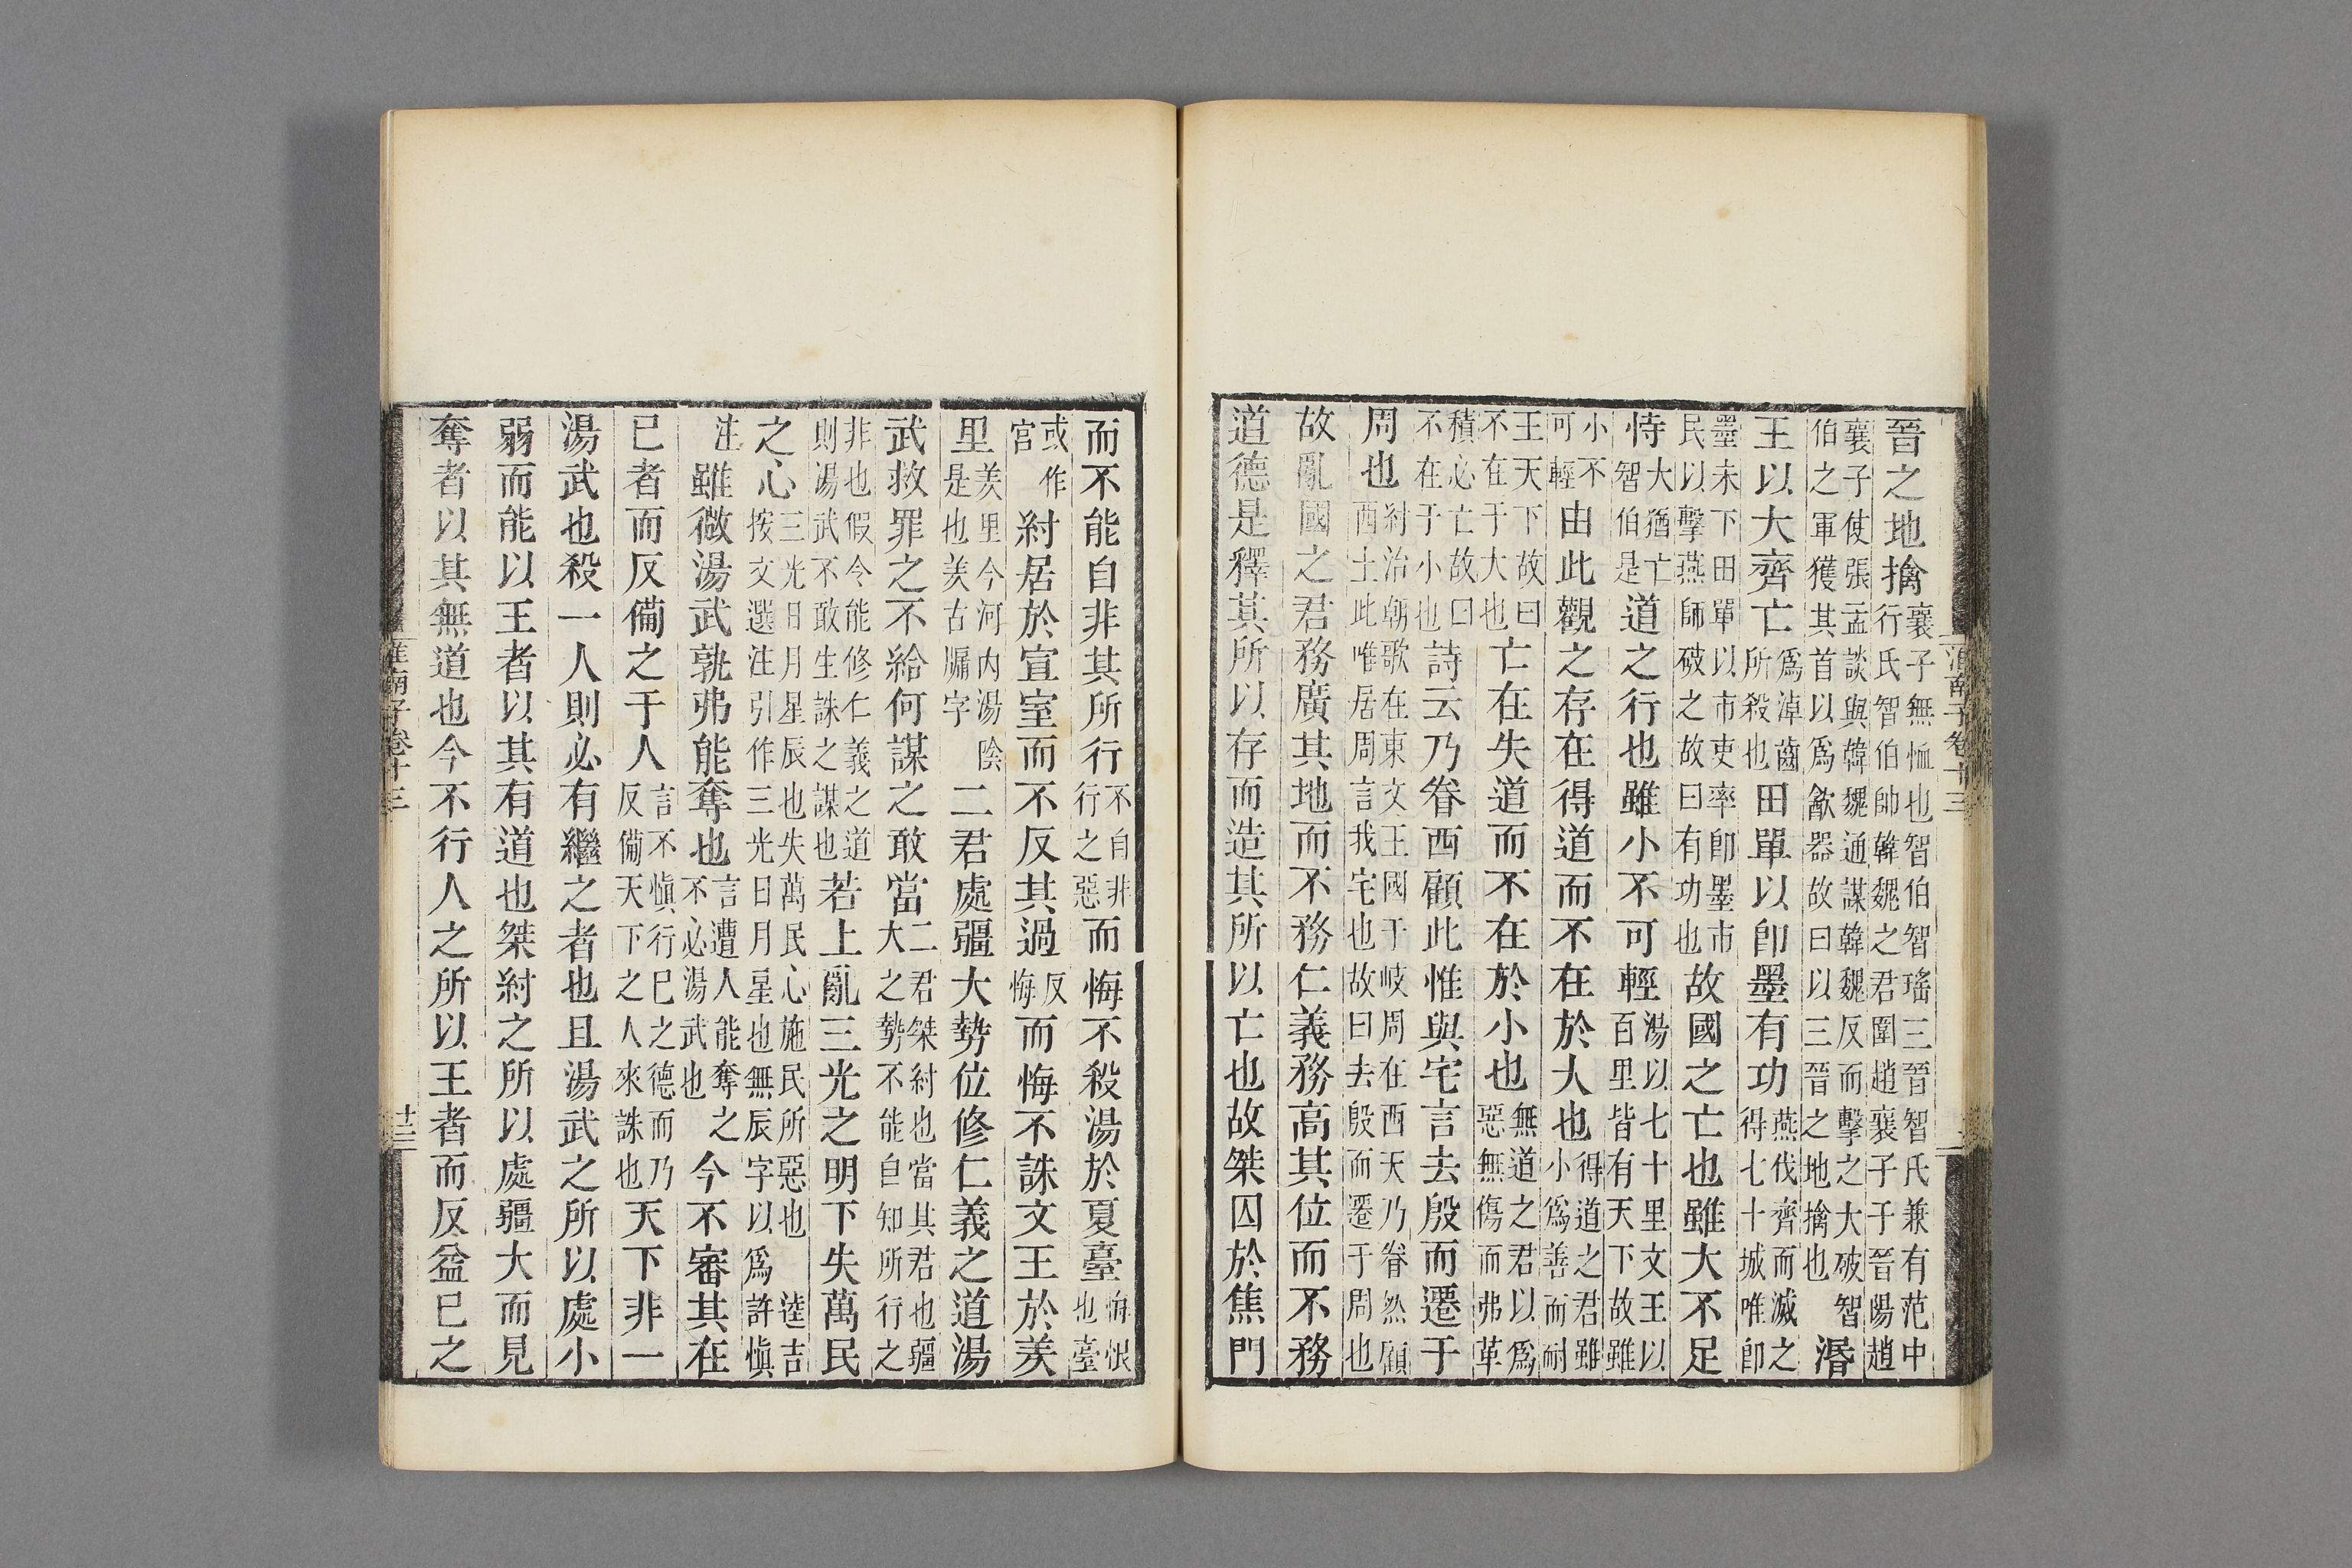 晉之地擒襄子無恤也智伯智瑤三晉智氏兼有范中行氏智伯帥韓魏之君圍趙襄子子晉陽趙
襄子使張孟談與韓魏通謀韓魏反而擊之大破智伯之軍獲其首以爲歙器故曰以三晉之地擒也湣
王以大齊亡爲淖齒所殺也田單以卽墨有功燕伐齊而滅之得七十城唯卽
墨未下田單以市吏率卽墨市民以擊燕師破之故曰有功也故國之亡也雖大不足
恃大猶亡智伯是道之行也雖小不可輕湯以七十里文王以百里皆有天下故雖
小不可輕由此觀之存在得道而不在於大也得道之君雖小爲善而耐
王天下故曰不在于大也亡在失道而不在於小也無道之君以爲惡無傷而弗革
積必亡故曰不在于小也詩云乃眷西顧此惟與宅言去殷而遷于
周也紂治朝歌在東文王國于岐周在西天乃眷然顧西土此唯居周言我宅也故曰去殷而遷于周也
故亂國之君務廣其地而不務仁義務高其位而不務
道德是釋其所以存而造其所以亡也故桀囚於焦門
而不能自非其所行不自非行之惡而悔不殺湯於夏臺悔恨也臺
或作宮紂居於宣室而不反其過反悔而悔不誅文王於羑
里羑里今河內湯陰是也羑古牖字二君處疆大勢位修仁義之道湯
武救罪之不給何謀之敢當二君桀紂也當其君也疆大之勢不能自知所行之
非也假令能修仁義之道則湯武不敢生誅之謀也若上亂三光之明下失萬民
之心三光日月星辰也失萬民心施民所惡也 逵吉按文選注引作三光日月星也無辰字以爲許慎
注雖微湯武孰弗能奪也言遭人能奪之不必湯武也今不審其在
已者而反備之于人言不慎行已之德而乃反備天下之人來誅也天下非一
湯武也殺一人則必有繼之者也且湯武之所以處小
弱而能以王者以其有道也桀紂之所以處疆大而見
奪者以其無道也今不行人之所以王者而反益已之
淮南子卷十三